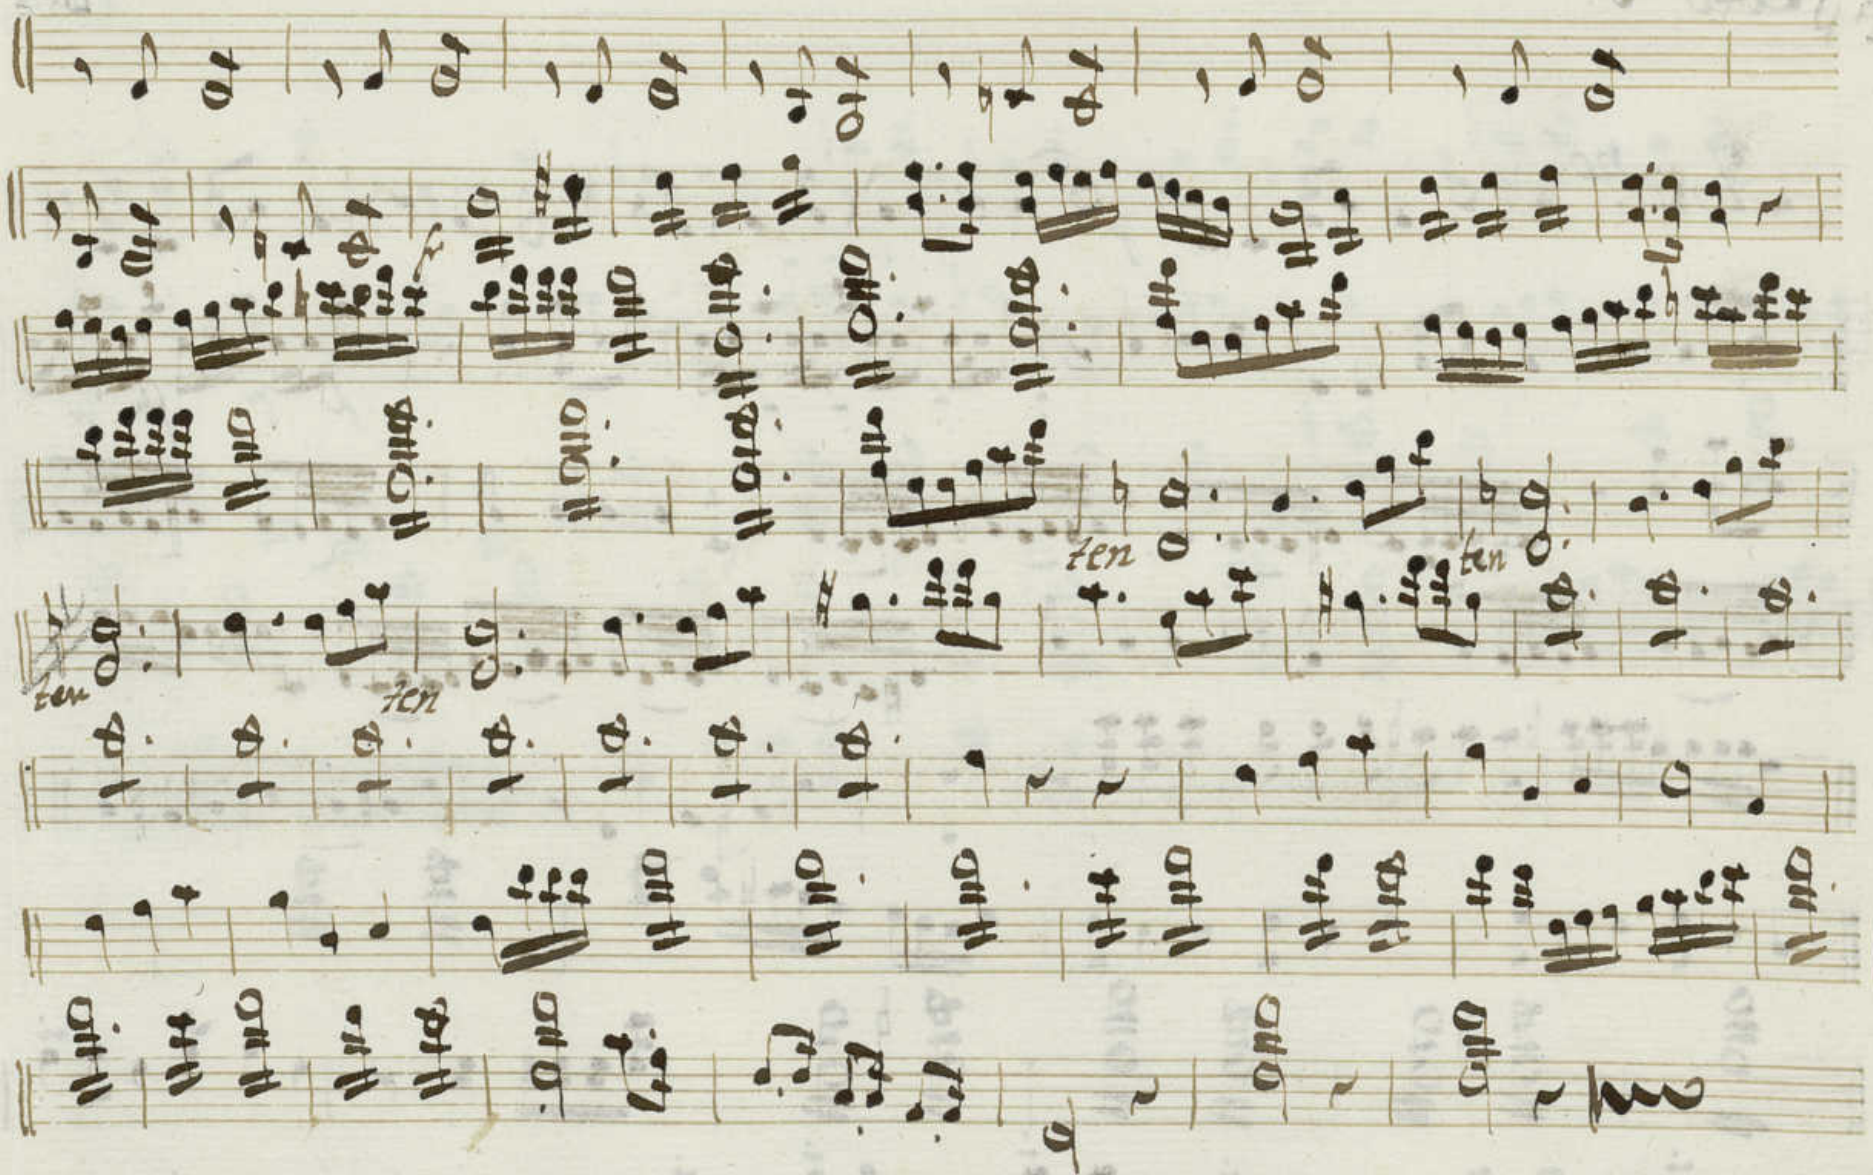 f
ten ten
ten ten